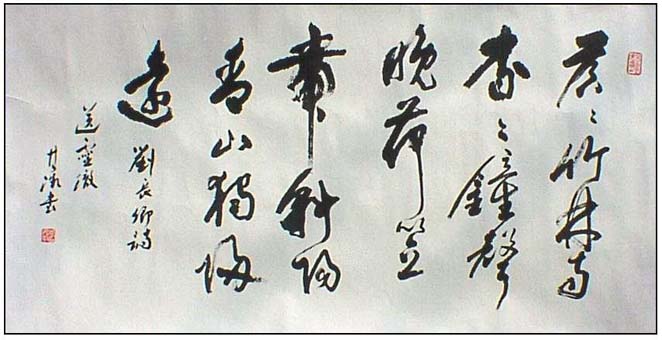 蒼〻竹林寺
杳〻鐘聲
晚荷笠
帶斜陽
青山獨歸
遠
劉長卿詩
送靈澈